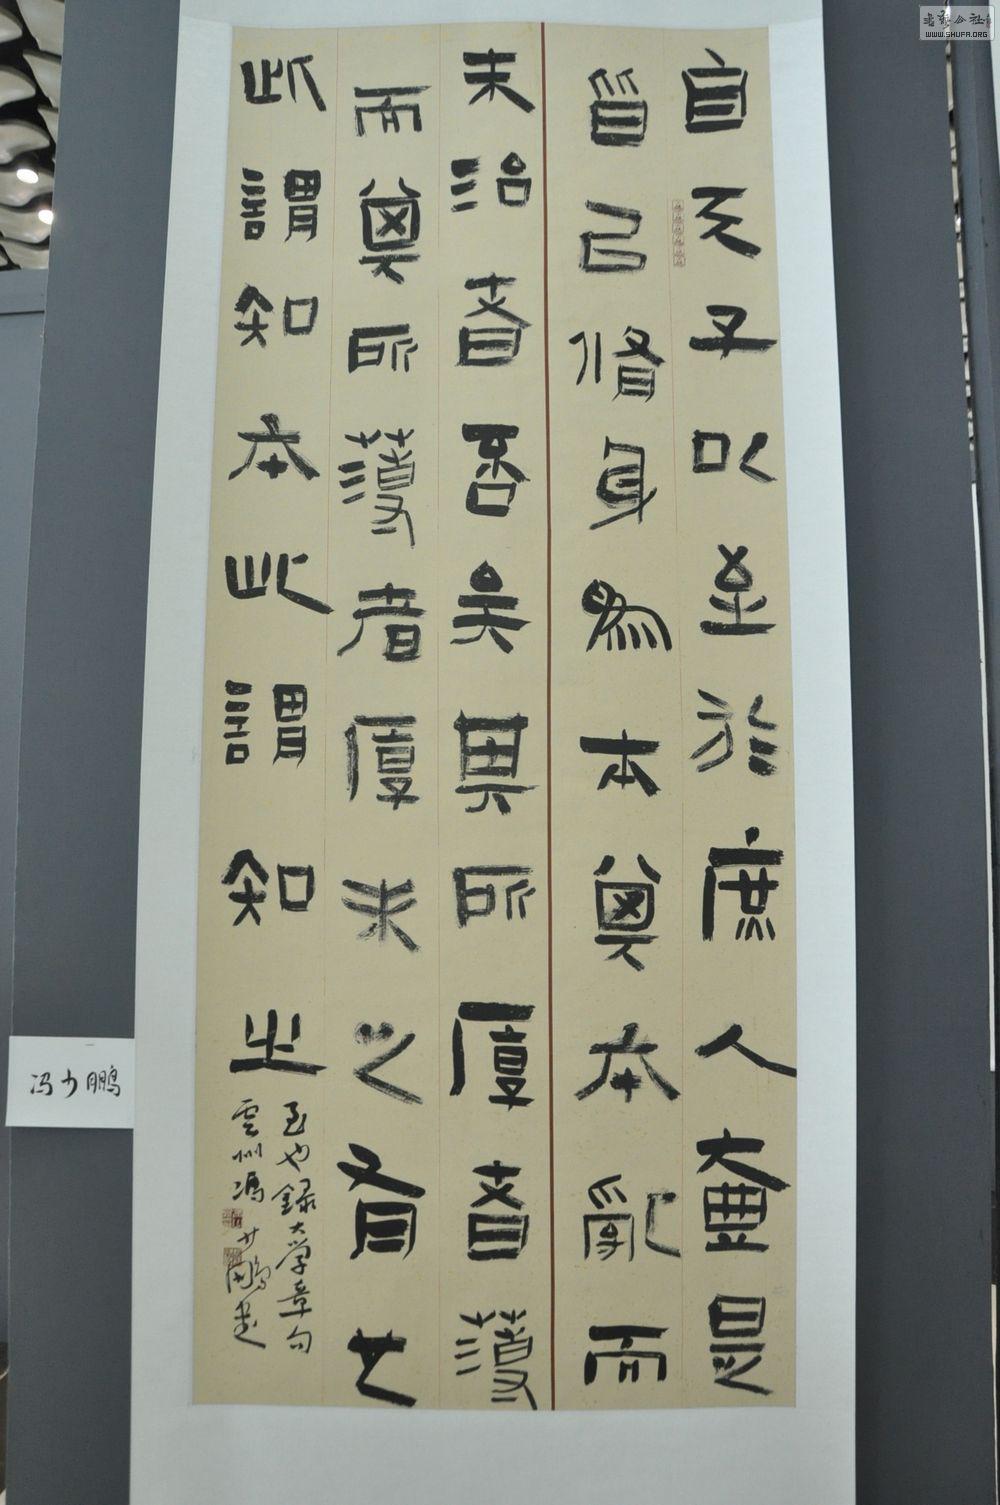 自天子以至於庶人壹是
皆以脩身為本其本亂而
末治者否矣其所厚者薄
而其所薄者厚未之有也
此謂知本此謂知之
至也錄大學章句
雲州馮少鵬書
冯少鹏
WWW.SHUFA.ORG